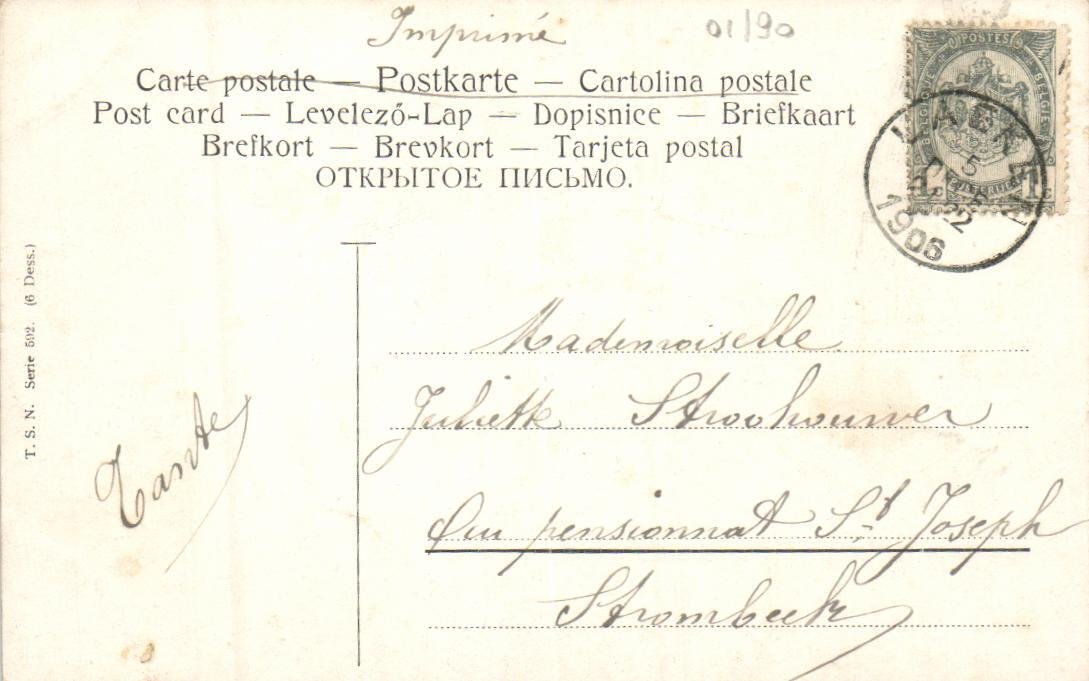 Imprimé
01/90
Carte postale — Postkarte — Cartolina postale
Post card — Levelező-Lap — Dopisnice — Briefkaart
Brefkort — Brevkort — Tarjeta postal
ОТКРЫТОЕ ПИСЬМО.
POSTES
BELGIQUE BELGIE
LAEKEN
5
22
1906
T. S. N. Serie 592. (6 Dess.)
Mademoiselle
Juliette Stroobouwer
Au pensionnat St. Joseph
Strombeek
Tante